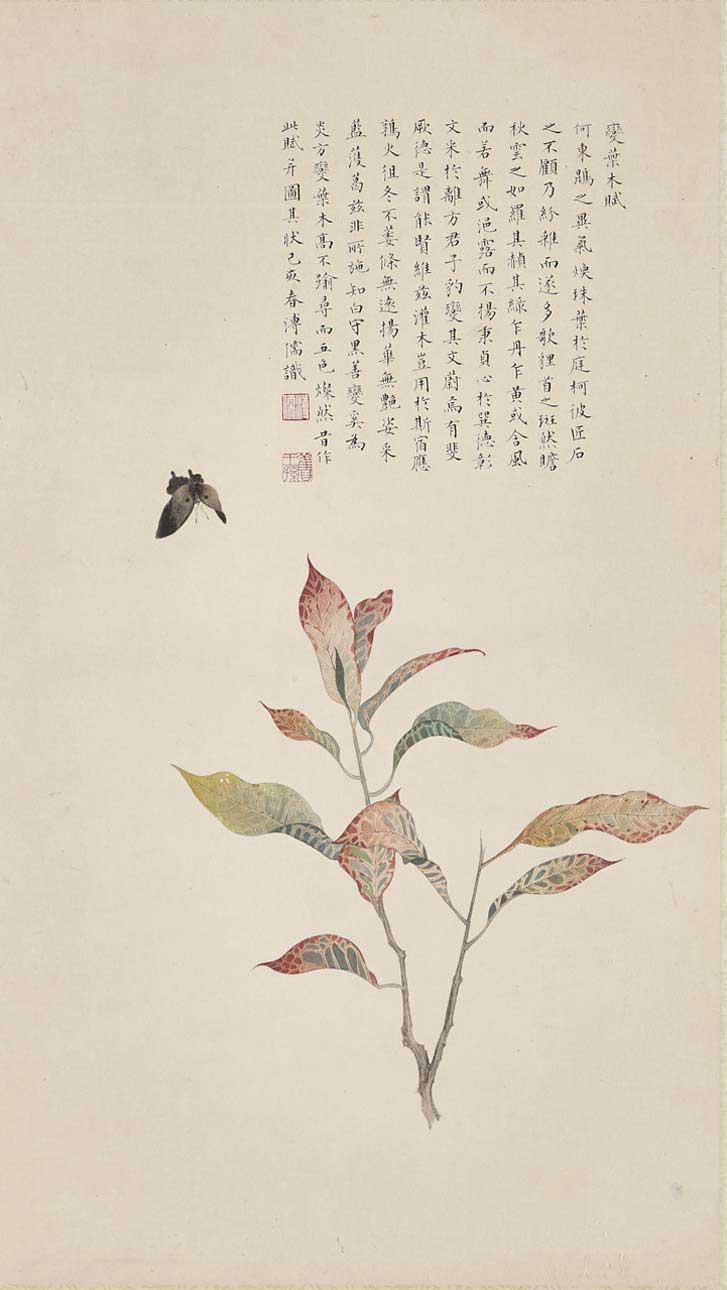 變葉木賦
何東之異氣煥珠葉於庭柯彼匠石
之不顧乃紛雜而遂多歌狸首之斑然瞻
秋雲之如羅其赬其綠乍丹乍黃或含風
而若舞或浥露而不揚秉貞心於巽德彰
文采於離方君子豹變其文蔚焉有斐
厥德是謂能賢維茲灌木豈用於斯宿應
鶉火徂冬不萎條無遠揚華無艷姿采
藍葛茲非所施知白守黑善變奚為
炎方變葉木高不踰尋而五色燦然昔作
此賦并圖其狀己亥春溥儒識
舊王孫